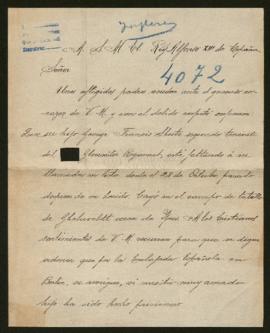 Inglesa
A. S. M. El Rey Alfonso XIII de España
4072
Señor:
Unos afligidos padres acuden ante el generoso
corazon de V. M. y con el debido respeto exponen:
Que su hijo George Francis Alberto segundo teniente
del Gloucester Regiment, está faltando á su
llamada en lista desde el 28 de Octubre
herido. Cayó en el campo de batalla
de Gheluveldt cerca de Ypres. A los cristianos
sentimientos de V. M. recurren para que se digne
ordenar que por la Embajada Española en
Berlin, se averigüe, si nuestro muy amado
hijo ha sido hecho prisionero